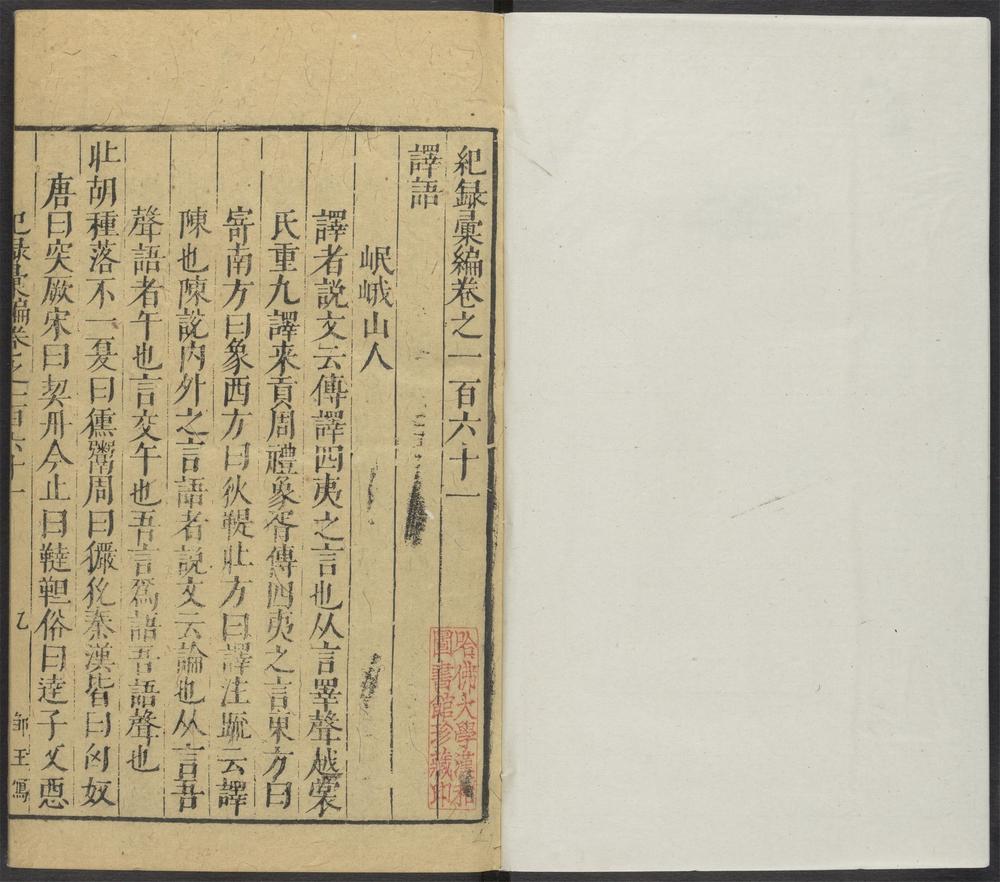 紀録彙編卷之一百六十一
譯語
岷峨山人
譯者説文云傳譯四夷之言也从言睪聲越裳
氏重九譯来貢周禮象胥傳四夷之言東方曰
寄南方曰象西方曰狄鞮北方曰譯注䟽云譯
陳也陳說内外之言語者説文云論也从言吾
聲語者午也言交午也吾言爲語吾語聲也
北胡種落不一夏曰獯鬻周曰玁狁秦漢皆曰匈奴
唐曰突厥宋曰契丹今止曰韃靼俗曰逹子又悪
紀録彙編卷之一百六十一
乙
王寫
哈佛大學漢和
圖書館珍藏印